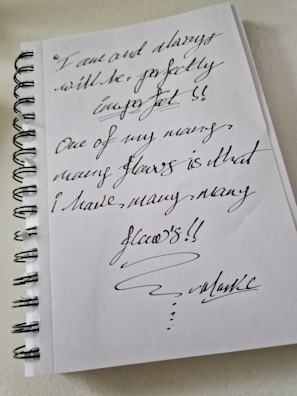 "I am and always
will be, perfectly
imperfect !!
One of my many,
many flaws is that
i have, many, many
flaws!!
~Mark C